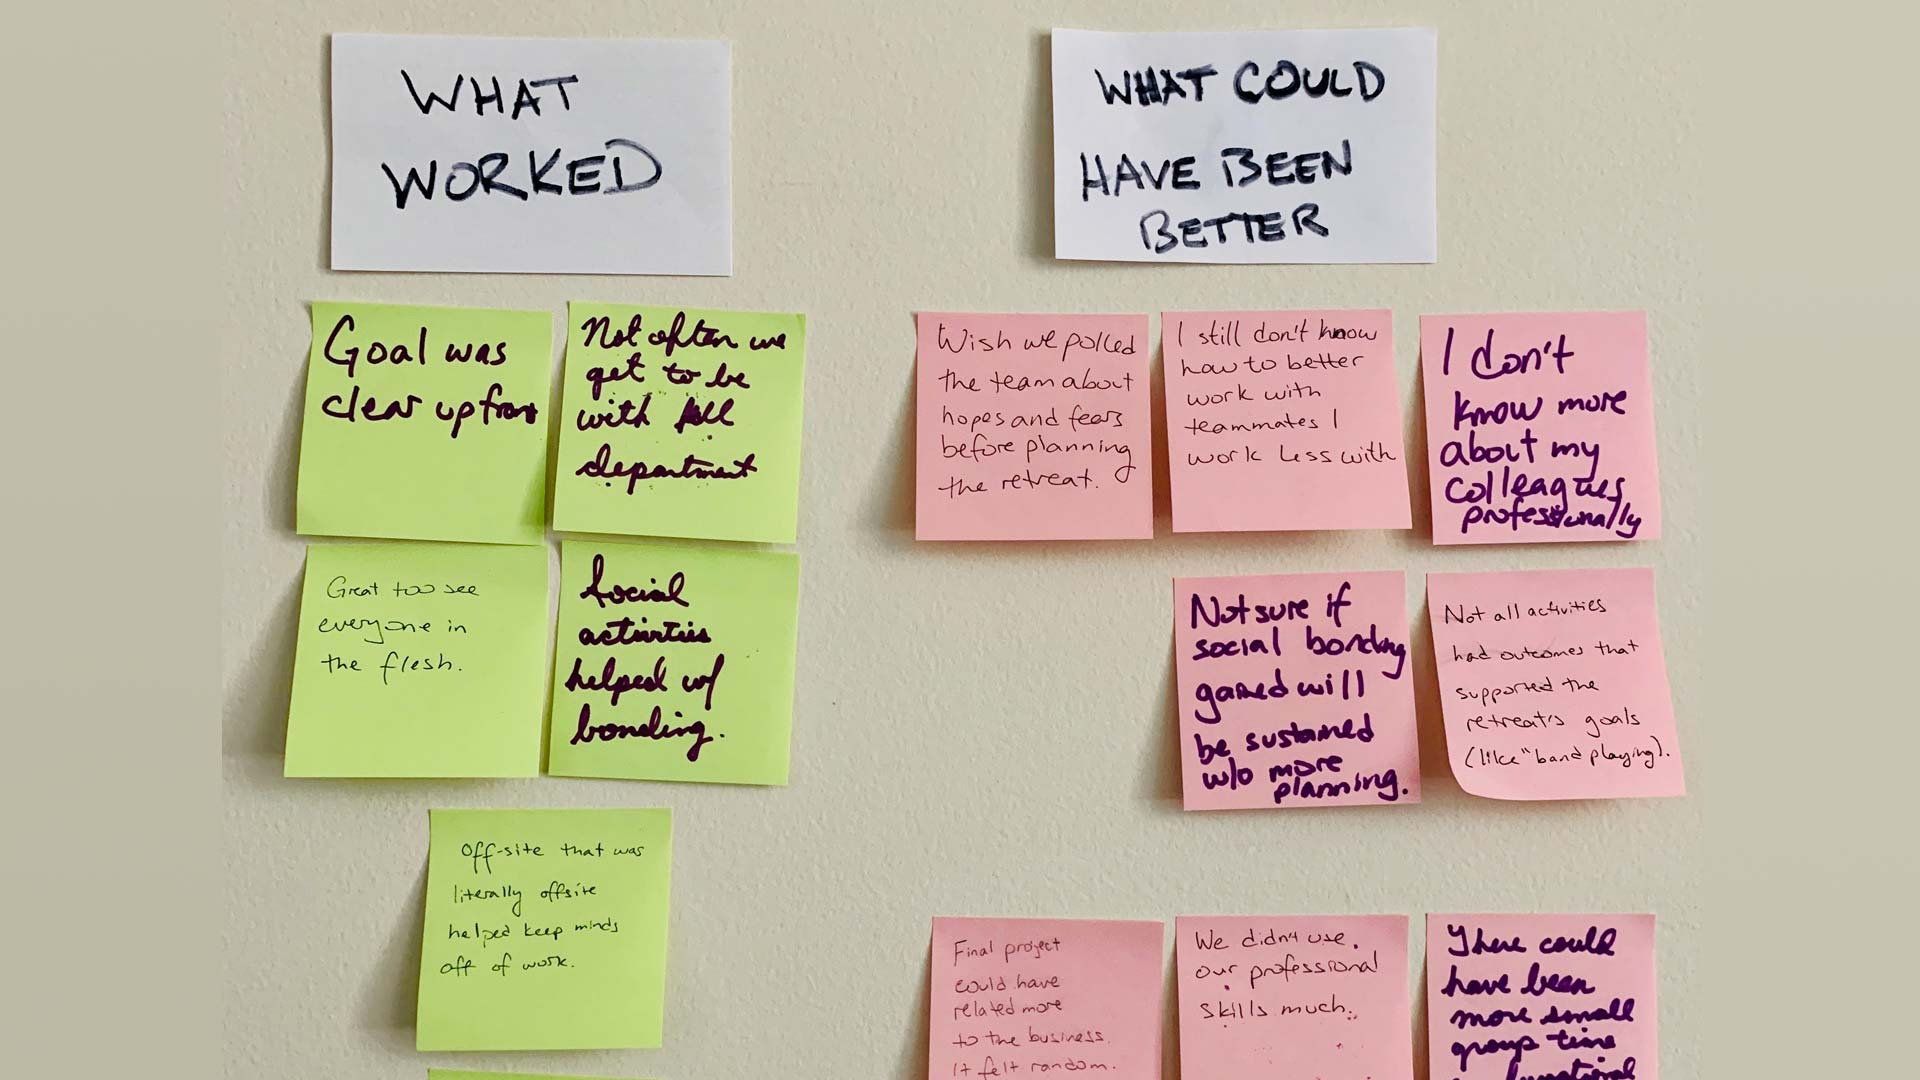 WHAT
WORKED
Goal was
clear upfront
Not often we
get to be
with full
department
Great too see
everyone in
the flesh.
Social
activities
helped w/
bonding.
Off-site that was
literally offsite
helped keep minds
off of work.
WHAT COULD
HAVE BEEN
BETTER
Wish we polled
the team about
hopes and fears
before planning
the retreat.
I still don't know
how to better
work with
teammates I
work less with
I don't
know more
about my
colleagues
professionally
Not sure if
social bonding
gained will
be sustained
w/o more
planning.
Not all activities
had outcomes that
supported the
retreat's goals
(like "band playing).
Final project
could have
related more
to the business.
It felt random.
We didn't use
our professional
skills much.
There could
have been
more small
group time